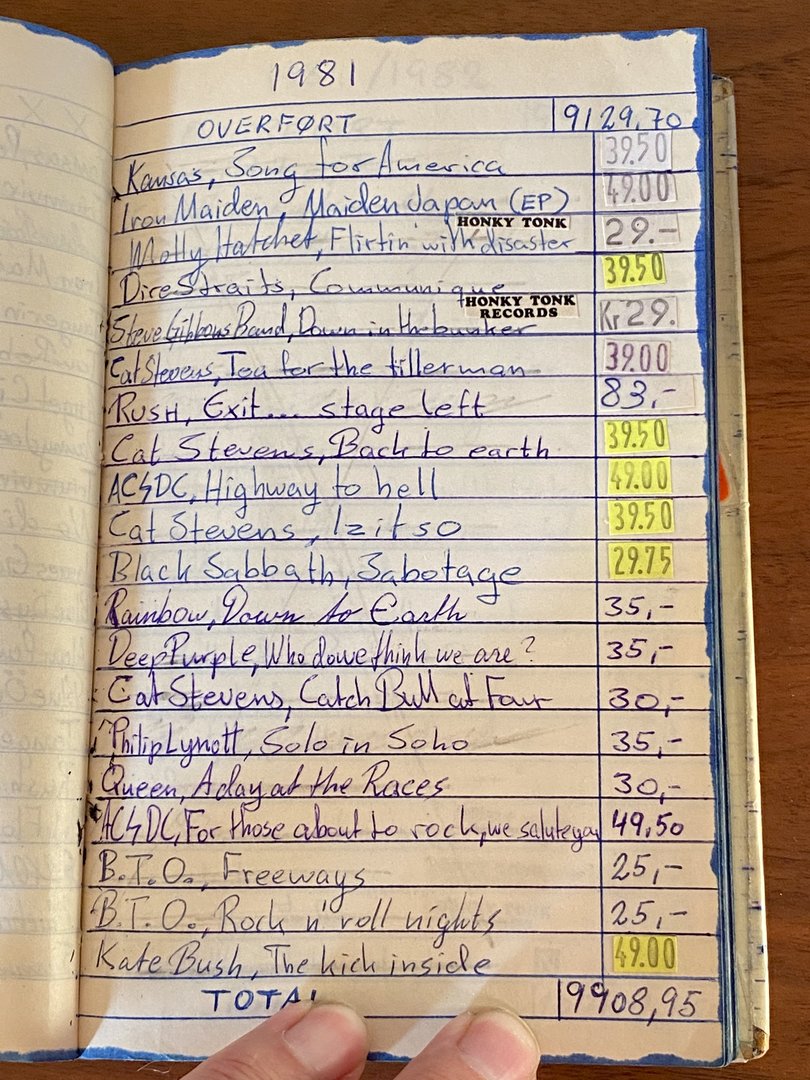 1981
OVERFØRT 9129,70
Kansas, Song for America 39.50
Iron Maiden, Maiden Japan (EP) 49.00
HONKY TONK
Molly Hatchet, Flirtin' with disaster 29.-
Dire Straits, Communique 39.50
HONKY TONK
RECORDS
Steve Gibbons Band, Down in the bunker Kr 29.
Cat Stevens, Tea for the tillerman 39.00
RUSH, Exit... stage left 83,-
Cat Stevens, Back to earth 39.50
AC⚡DC, Highway to hell 49.00
Cat Stevens, Izitso 39.50
Black Sabbath, Sabotage 29.75
Rainbow, Down to Earth 35,-
Deep Purple, Who do we think we are? 35,-
Cat Stevens, Catch Bull at Four 30,-
Philip Lynott, Solo in Soho 35,-
Queen, A day at the Races 30,-
AC⚡DC, For those about to rock, we salute you 49,50
B.T.O., Freeways 25,-
B.T.O., Rock n' roll nights 25,-
Kate Bush, The kick inside 49.00
TOTAL 9908,95